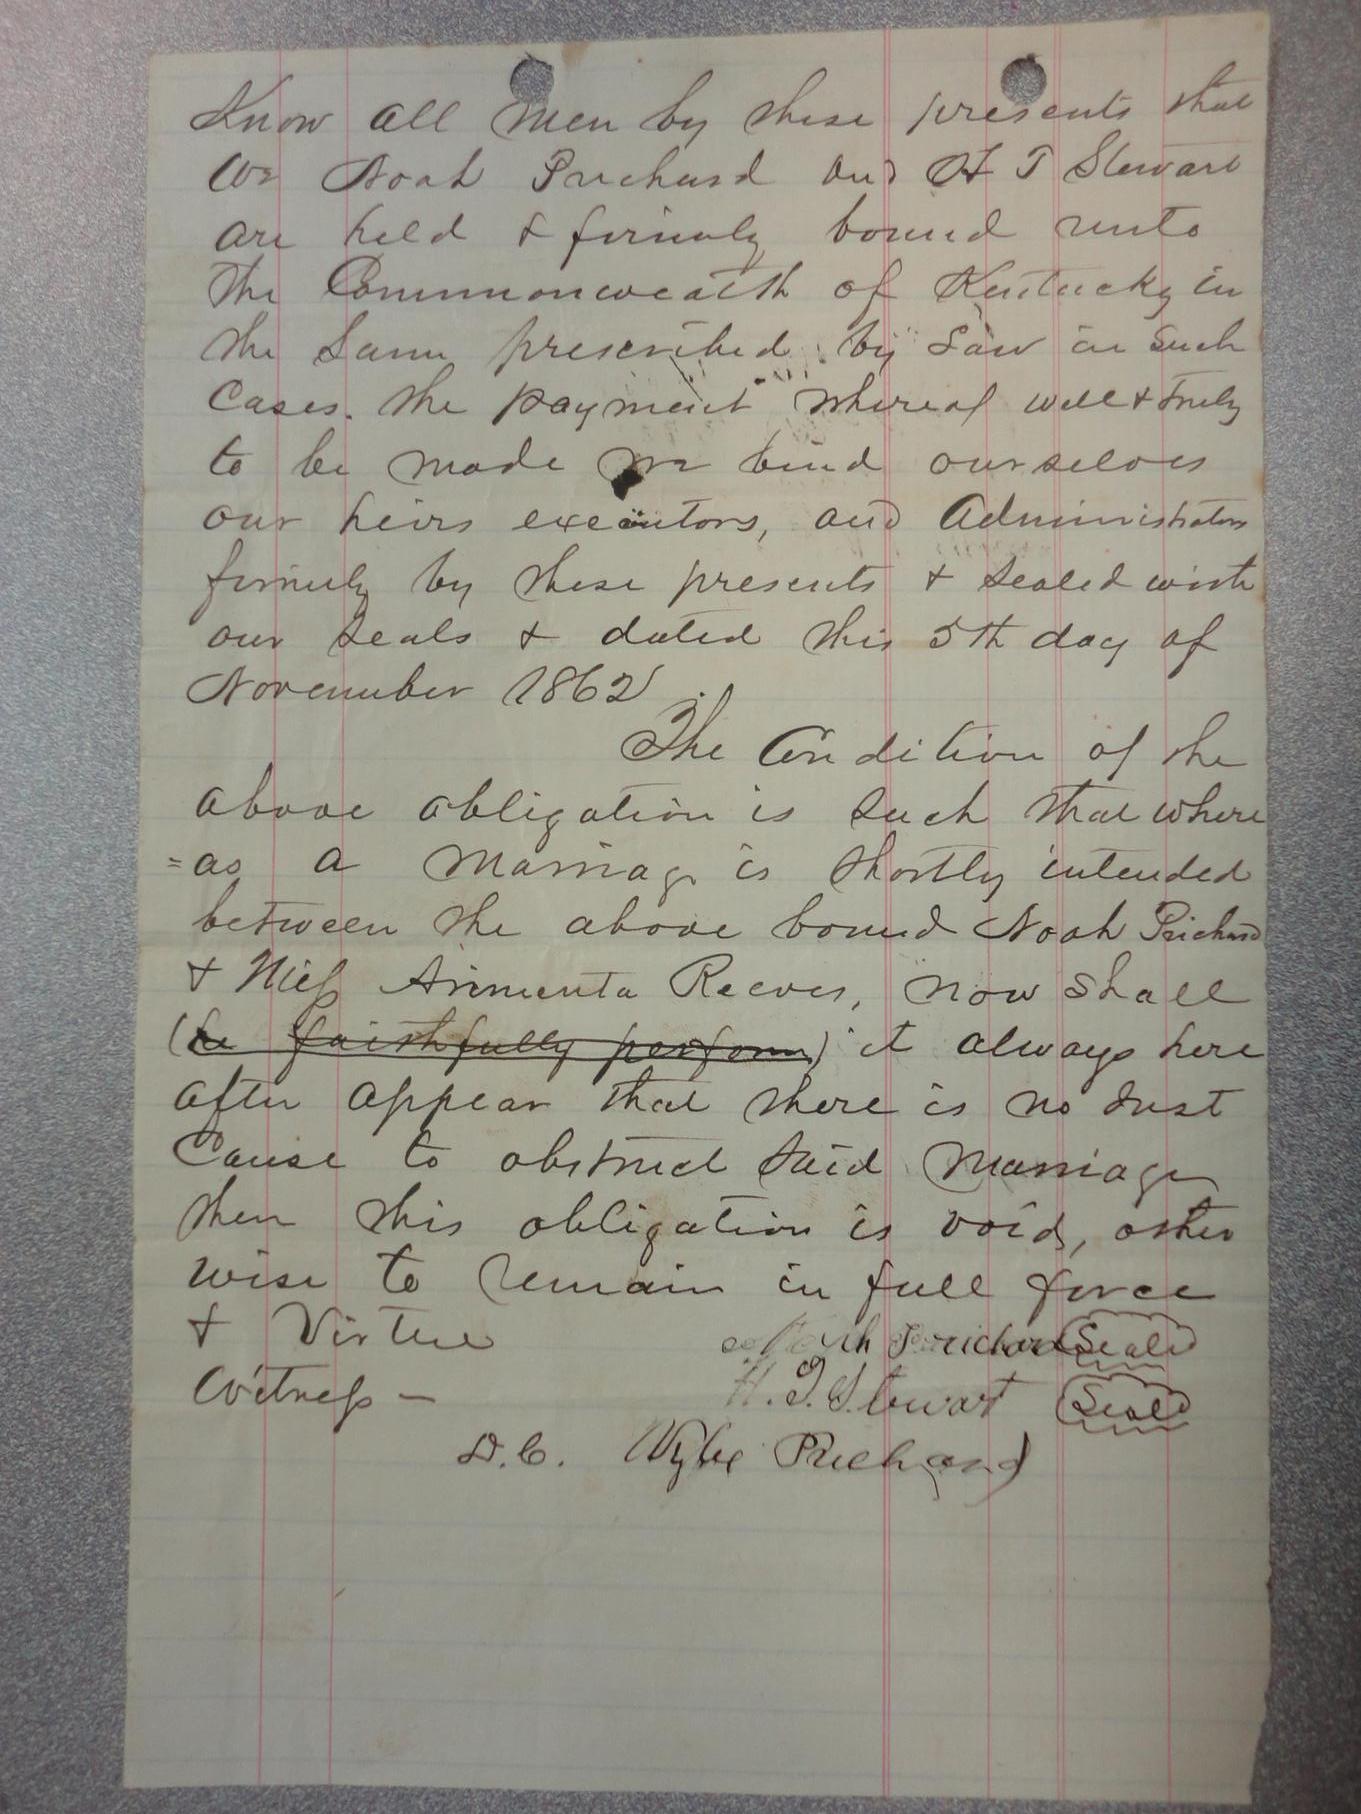 Know all men by these presents that
We Noah Prichard and H T Stewart
are held & firmly bound unto
the Commonwealth of Kentucky in
the Sum prescribed by Law in Such
Cases. the payment whereof well & truly
to be made we bind ourselves
our heirs executors, and Administrators
firmly by these presents & sealed with
our seals & dated this 5th day of
November 1862
The Condition of the
above obligation is such that where
=as a Marriage is shortly intended
between the above bound Noah Prichard
& Miss Arimenta Reeves, now shall
(be faithfully perform) it always here
after appear that there is no Just
Cause to obstruct said Marriage
then this obligation is void, other
wise to remain in full force
& Virtue Noah Prichard Seal
Witness — H. T. Stewart Seal
D.C. Prichard